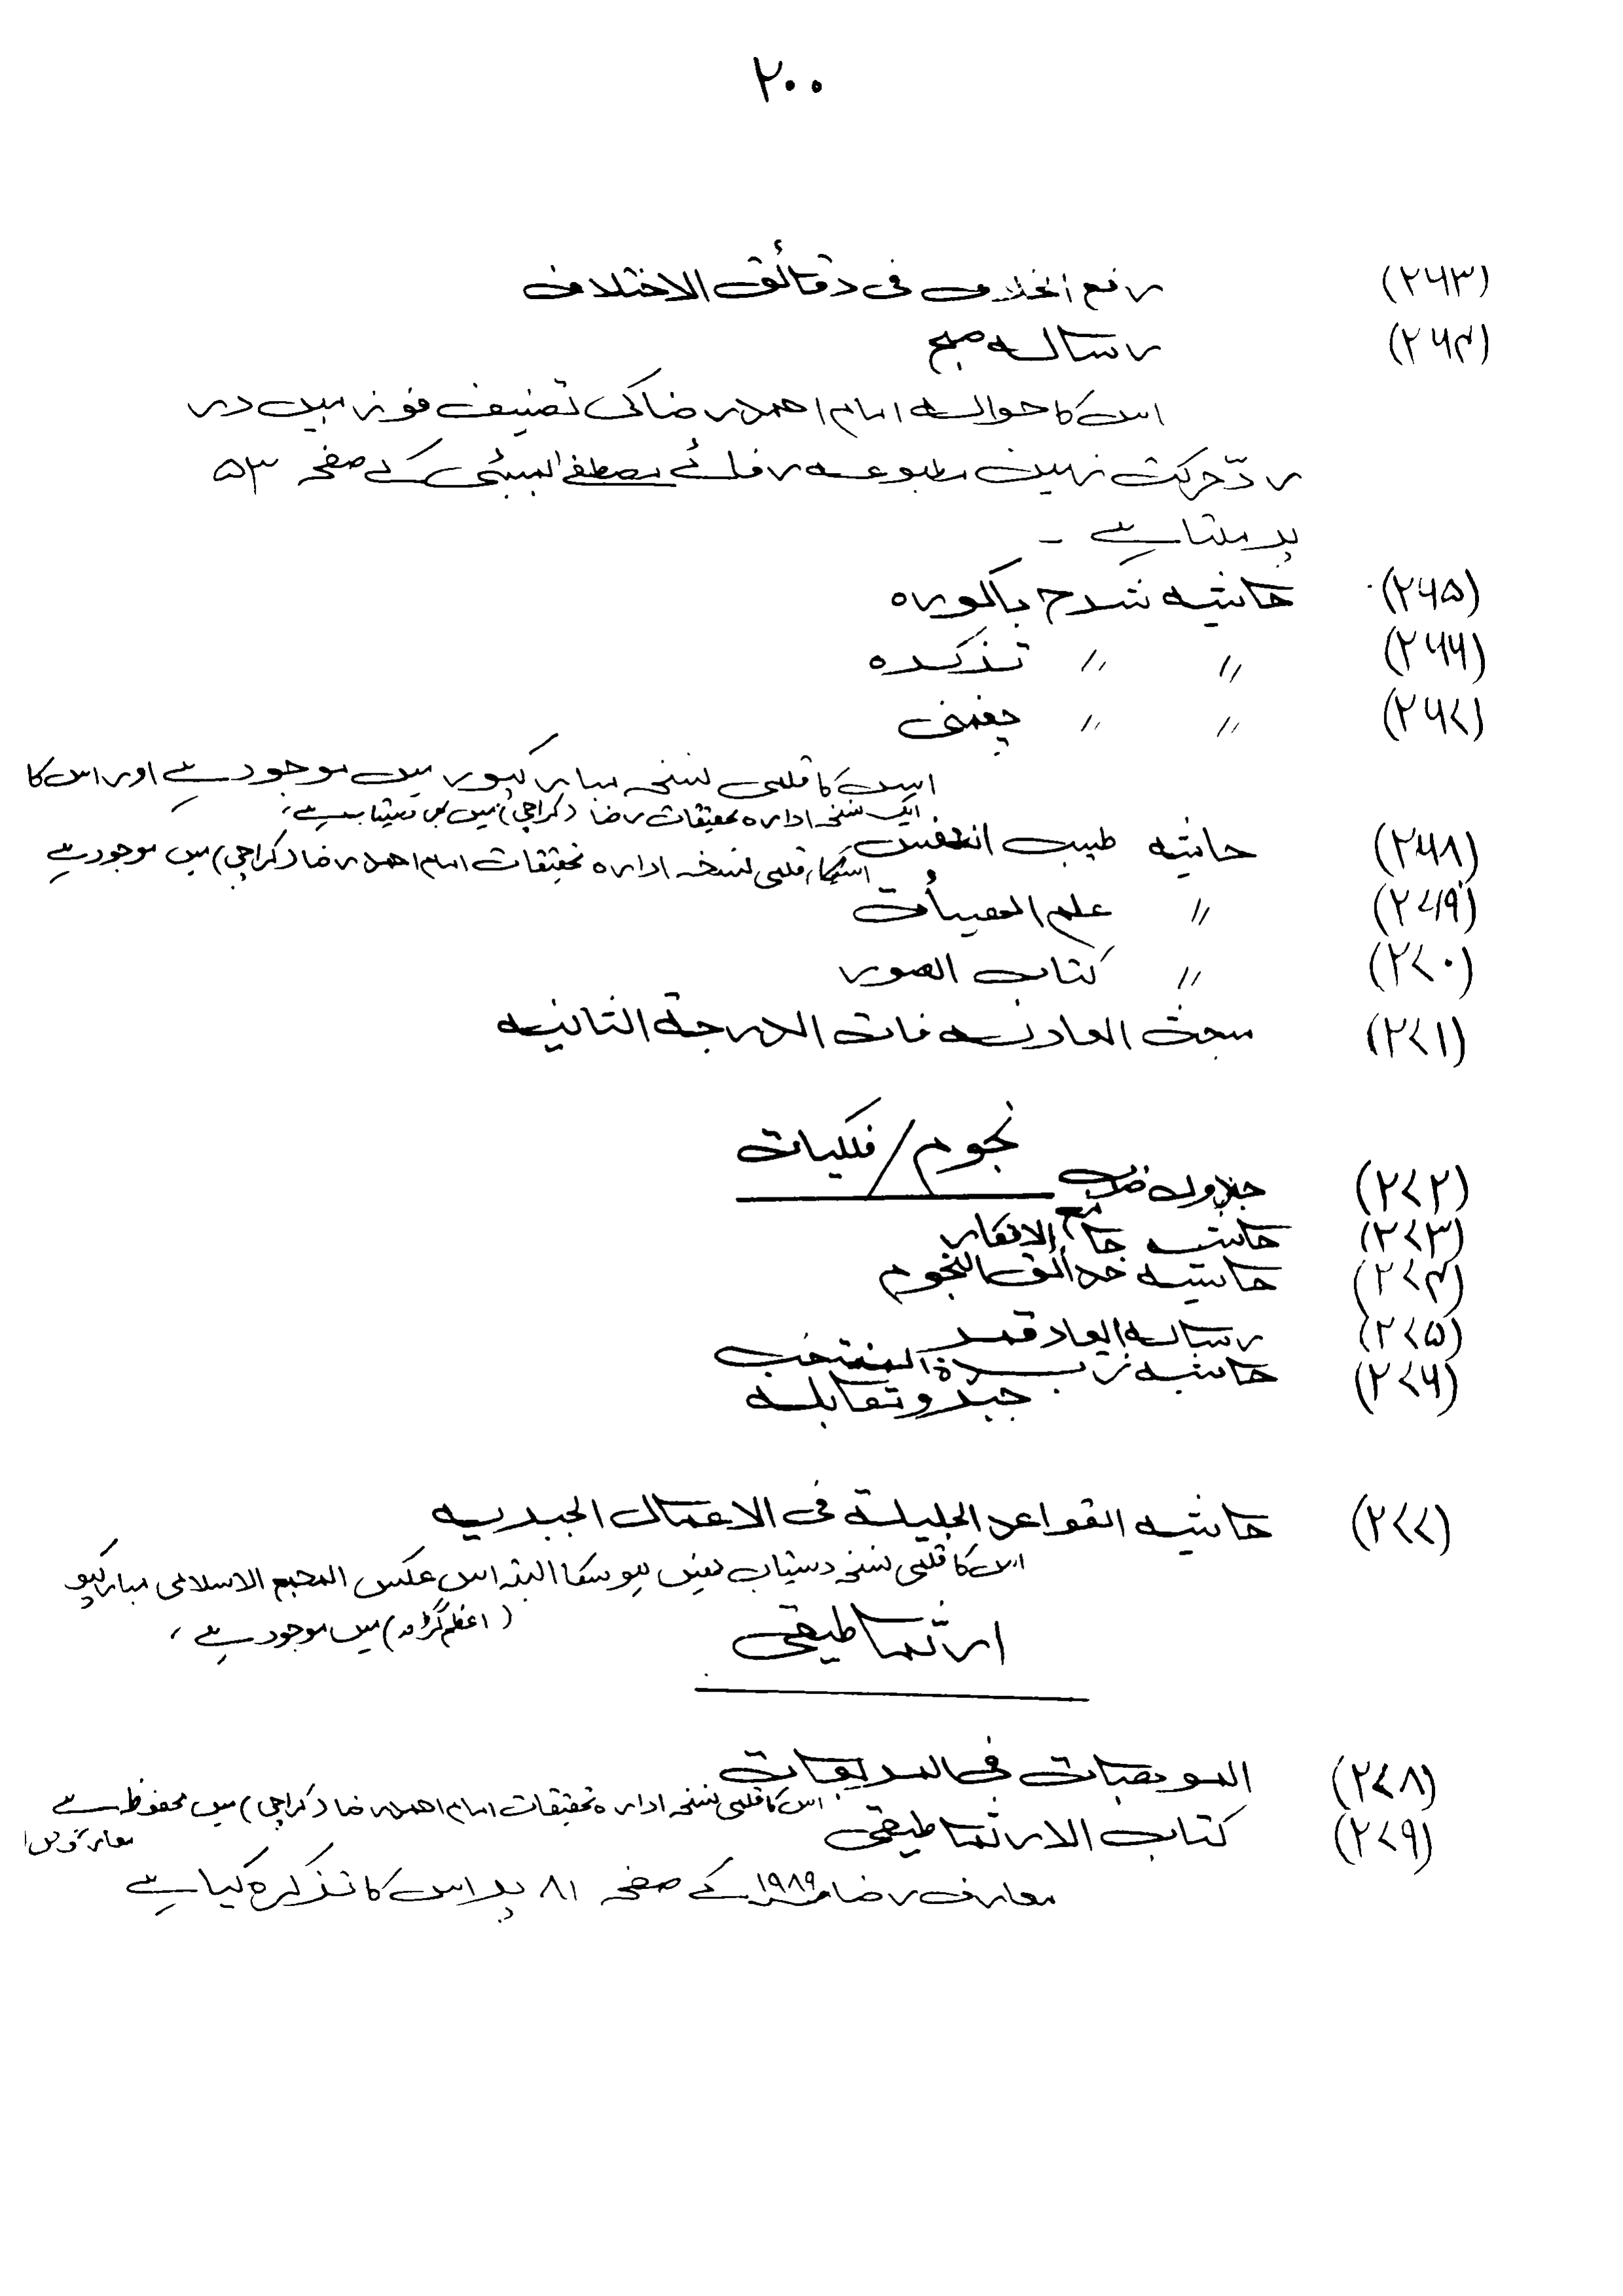 ۲۰۰
(۲۶۳) رفع الخلاف فی دقائق الاختلاف
(۲۶۴) رسالہ صبح
اس کا حوالہ امام احمد رضا کی تصنیف فوز مبین در
ردّ حرکت زمین مطبوعہ رضائے مصطفےٰ بمبئی کے صفحہ ۵۳
پر ملتا ہے ۔
(۲۶۵) حاشیہ شرح باکورہ
(۲۶۶) 〃 〃 تذکرہ
(۲۶۷) 〃 〃 چغمنی
اس کا قلمی نسخہ مبارکپور میں موجود ہے اور اس کا
ایک نسخہ ادارہ تحقیقات رضا (کراچی) میں بھی دستیاب ہے،
(۲۶۸) حاشیہ طیب النفس
اسکا قلمی نسخہ ادارہ تحقیقات امام احمد رضا (کراچی) میں موجود ہے
(۲۶۹) 〃 علم الھیأت
(۲۷۰) 〃 کتاب الصور
(۲۷۱) مبحث المعادلہ ذات الدرجۃ الثانیہ
نجوم/فلکیات
(۲۷۲)
(۲۷۳) حاشیہ جامع الافکار
(۲۷۴) حاشیہ حدائق النجوم
(۲۷۵) رسالہ ابعاد قمر
(۲۷۶) حاشیہ زبدۃ المنتخب
جبر و تقابلہ
(۲۷۷) حاشیہ القواعد الجلیلۃ فی الاعمال الجبریہ
اس کا قلمی نسخہ دستیاب نہیں ہو سکا البتہ اس عکس المجمع الاسلامی مبارکپو
(اعظم گڑھ) میں موجود ہے،
ارثماطیقی
(۲۷۸) الموھبات فی المربعات
اس کا قلمی نسخہ ادارہ تحقیقات امام احمد رضا (کراچی) میں محفوظ ہے
(۲۷۹) کتاب الارثماطیقی
معارف رضا ۱۹۸۹ کے صفحہ ۸۱ پر اس کا تذکرہ کیا ہے